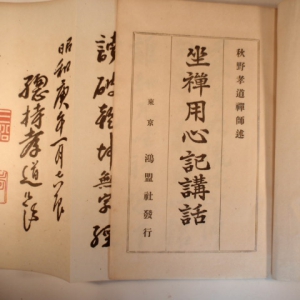 秋野孝道禪師述
坐禪用心記講話
東京 鴻盟社發行
讀破乾坤無字經
昭和庚午一月
總持孝道